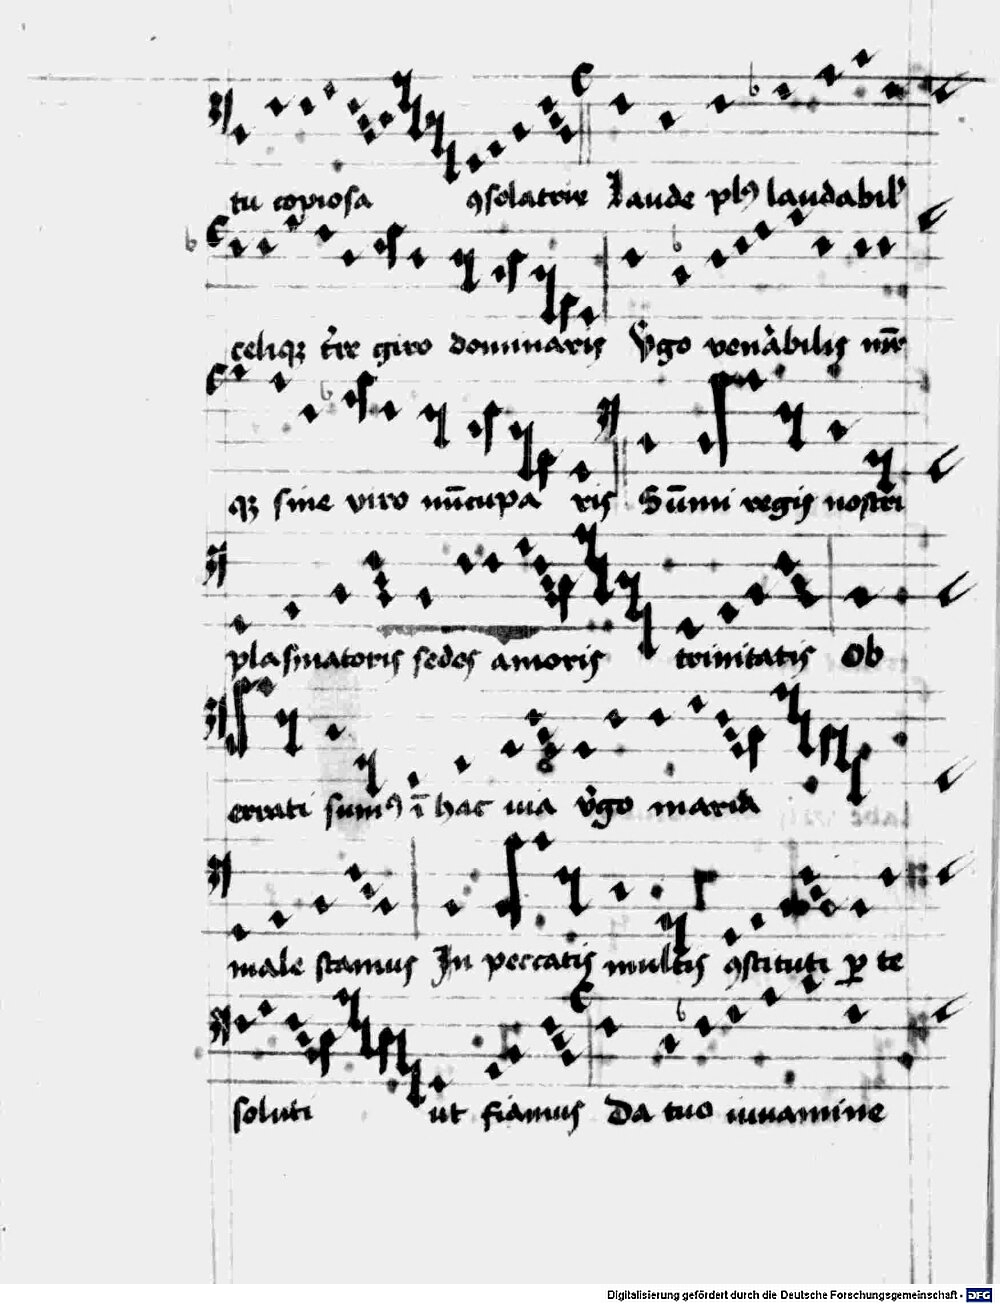 tu copiosa ꝯsolatrix Laude plꝰ laudabil᷒
celiqꝫ t̓re giro dominaris V̓go ven̓abilis
qꝫ sine viro nūcuparis Sūmi regis nostri
plasmatoris sedes amoris trinitatis Ob
errati sumꝰ ī hac uia v̓go maria
male stamus In peccatis multis ꝯstituti ꝑ te
soluti ut fiamus Da tuo iuuamine
Digitalisierung gefördert durch die Deutsche Forschungsgemeinschaft - DFG